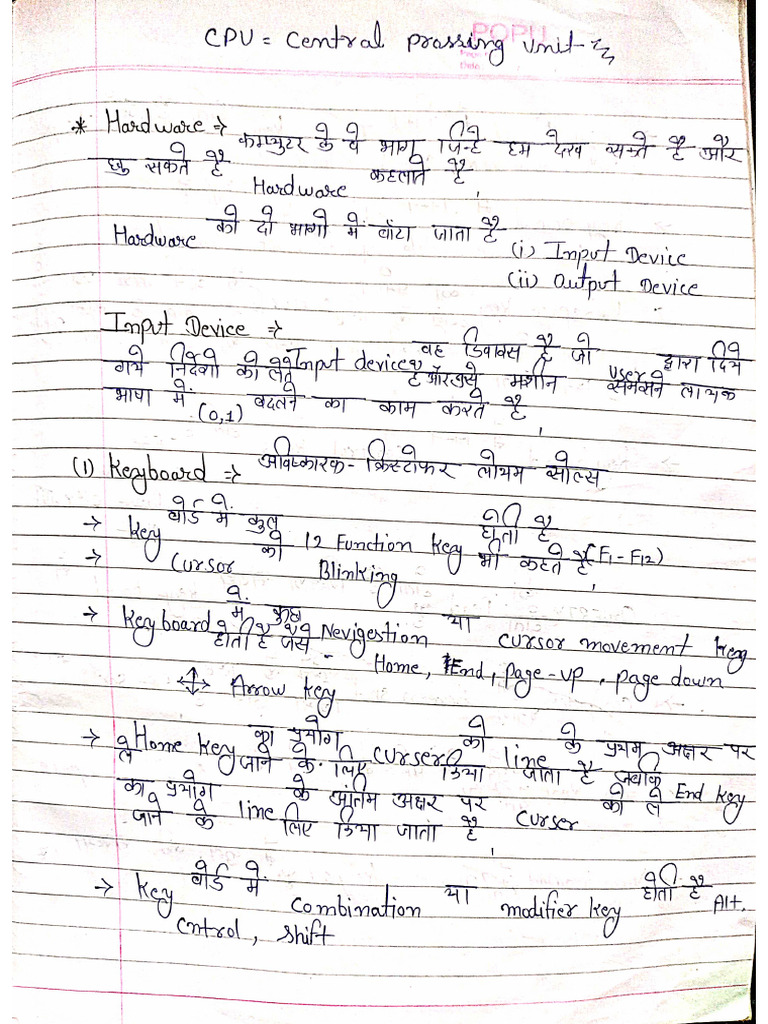 POPULAR
CPU = Central prossing Unit
* Hardware ⇒ कम्प्युटर के वे भाग जिन्हे हम देख सकते है और
छु सकते है Hardware कहलाते है,
Hardware को दो भागो में वाँटा जाता है
(i) Input Device
(ii) Output Device
Input Device ⇒ वह डिवाइस है जो user द्वारा दिये
गये निर्देशो को लेते Input device है और उसे मशीन समझने लायक
भाषा में (0,1) बदलने का काम करते है,
(1) Keyboard ⇒ अविष्कारक - क्रिस्टोफर लोथम सोल्स
→ Key वोर्ड में कुल 12 Function Key होती है (F1-F12)
→ Cursor को Blinking भी कहते है,
→ Keyboard में कुछ Nevigestion या cursor movement Key
होती है जैसे - Home, End, page-up, page down
Arrow Key
→ Home Key का प्रयोग curser को line के प्रथम अक्षर पर
ले जाने के लिए किया जाता है जबकि End Key
का प्रयोग line के अंतिम अक्षर पर curser को ले
जाने के लिए किया जाता है,
→ Key वोर्ड में combination या modifier Key होती है Alt,
Cntrol, Shift